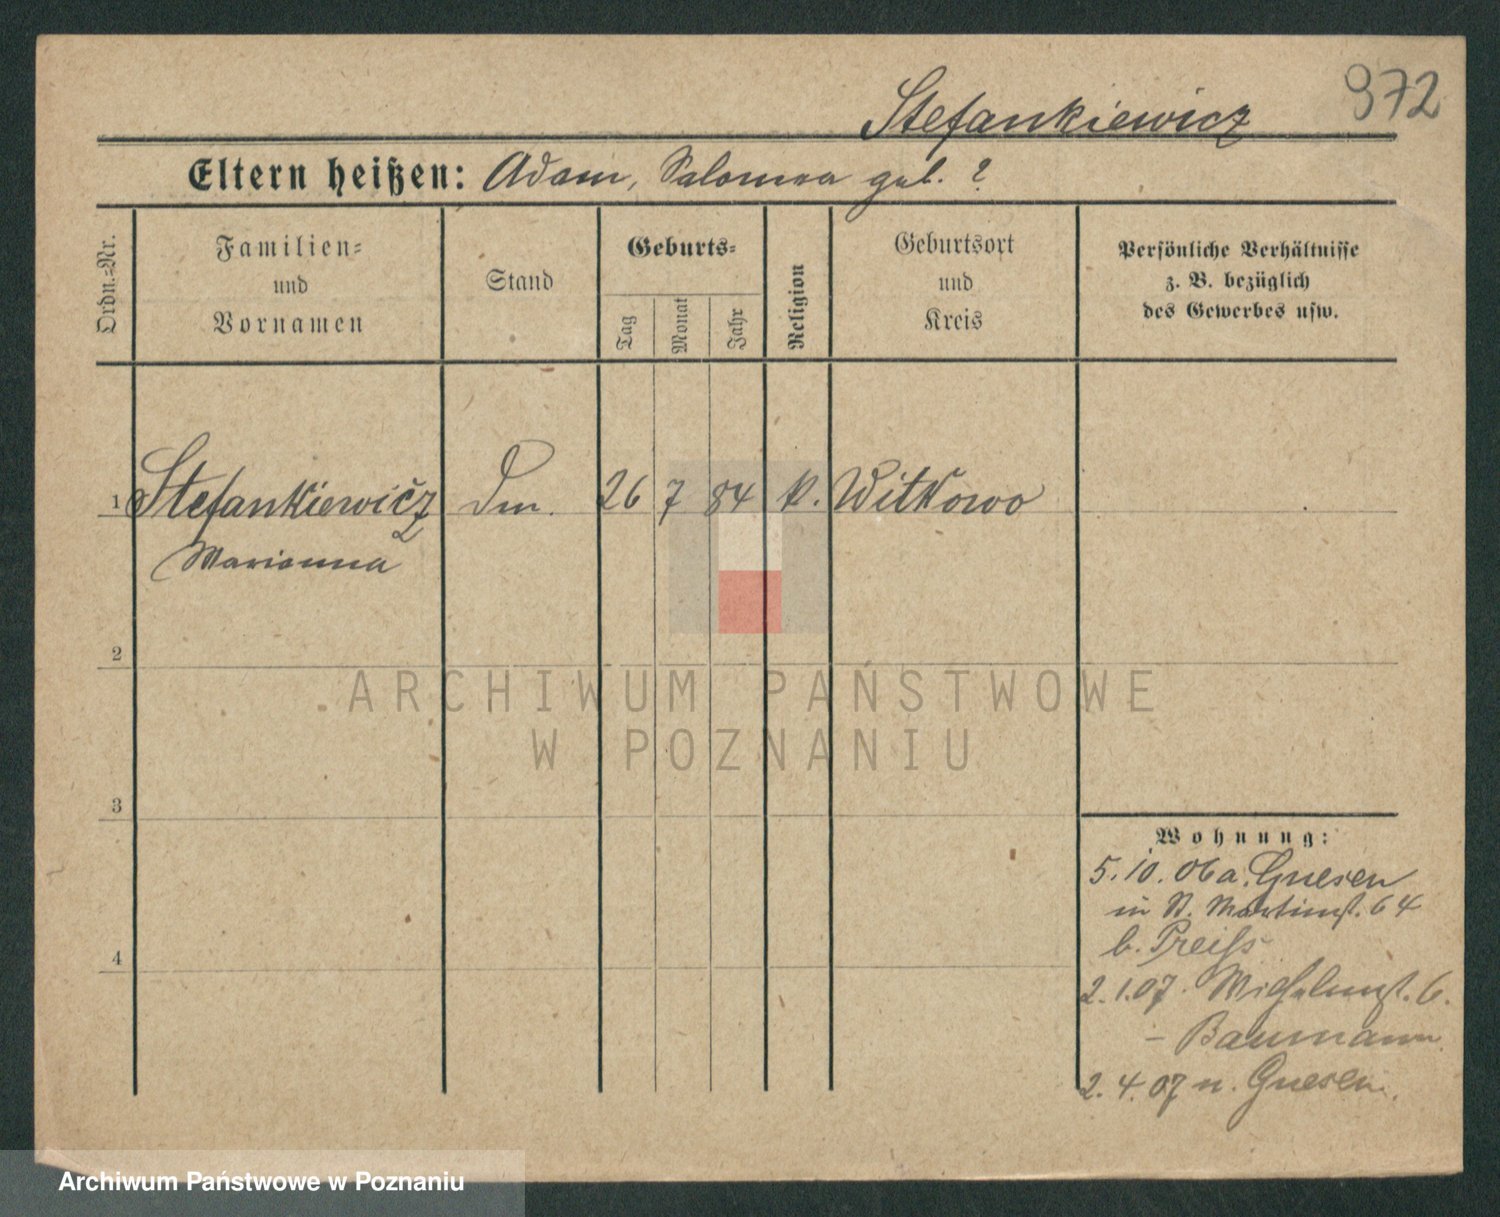 972
Stefankiewicz
Eltern heißen: Adam, Salomea geb. ?
Ordn.-Nr.
Familien-
und
Vornamen
Stand
Geburts-
Tag
Monat
Jahr
Religion
Geburtsort
und
Kreis
Persönliche Verhältnisse
z. B. bezüglich
des Gewerbes usw.
1 Stefankiewicz Dm. 26 7 84 k. Witkowo
Marianna
2
ARCHIWUM PAŃSTWOWE
W POZNANIU
3
Wohnung:
5. 10. 06 a. Gnesen
in St. Martinst. 64
b. Preiss
4
2. 1. 07. Wilhelmst. 6.
– Baumann
2. 4. 07 n. Gnesen.
Archiwum Państwowe w Poznaniu